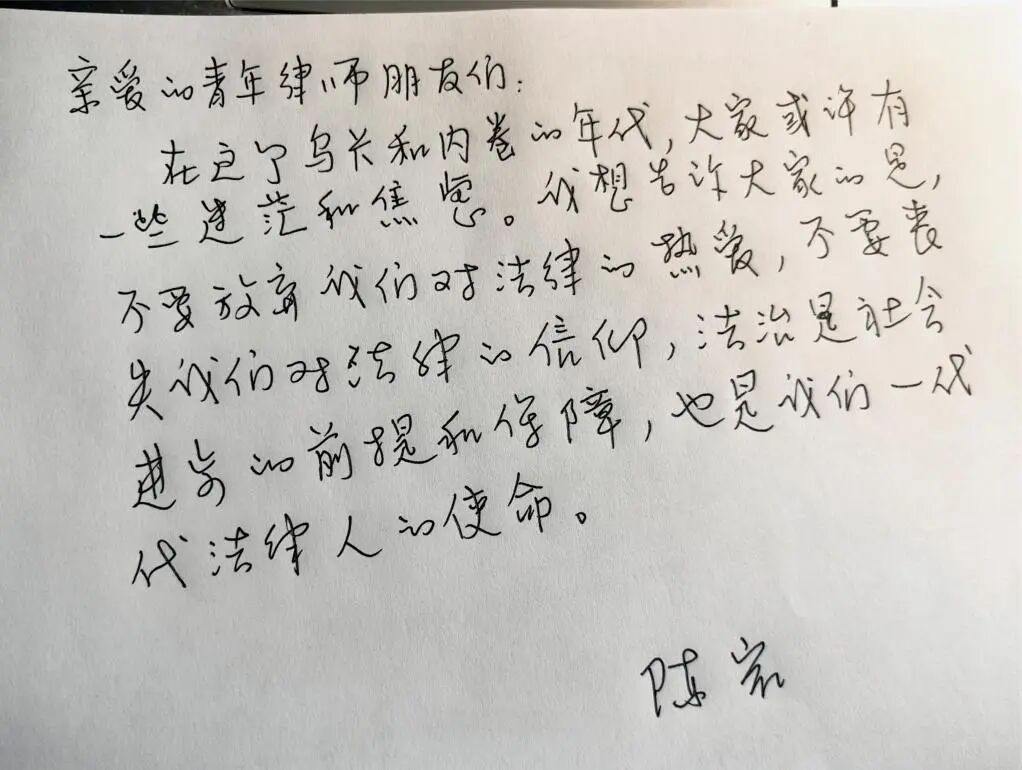 亲爱的青年律师朋友们：
在这个乌卡和内卷的年代，大家或许有
一些迷茫和焦虑。我想告诉大家的是，
不要放弃我们对法律的热爱，不要丧
失我们对法律的信仰，法治是社会
进步的前提和保障，也是我们一代
代法律人的使命。
陈